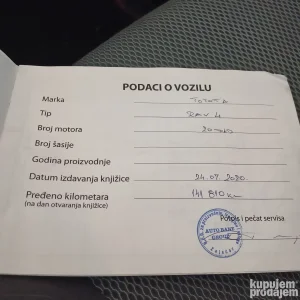 PODACI O VOZILU
Marka TOYOTA
Tip RAV 4
Broj motora
Broj šasije
Godina proizvodnje
Datum izdavanja knjižice 24.07.2020.
Pređeno kilometara 141 810 km
(na dan otvaranja knjižice)
Potpis i pečat servisa
AUTO DART
GROUP
kupujem
prodajem